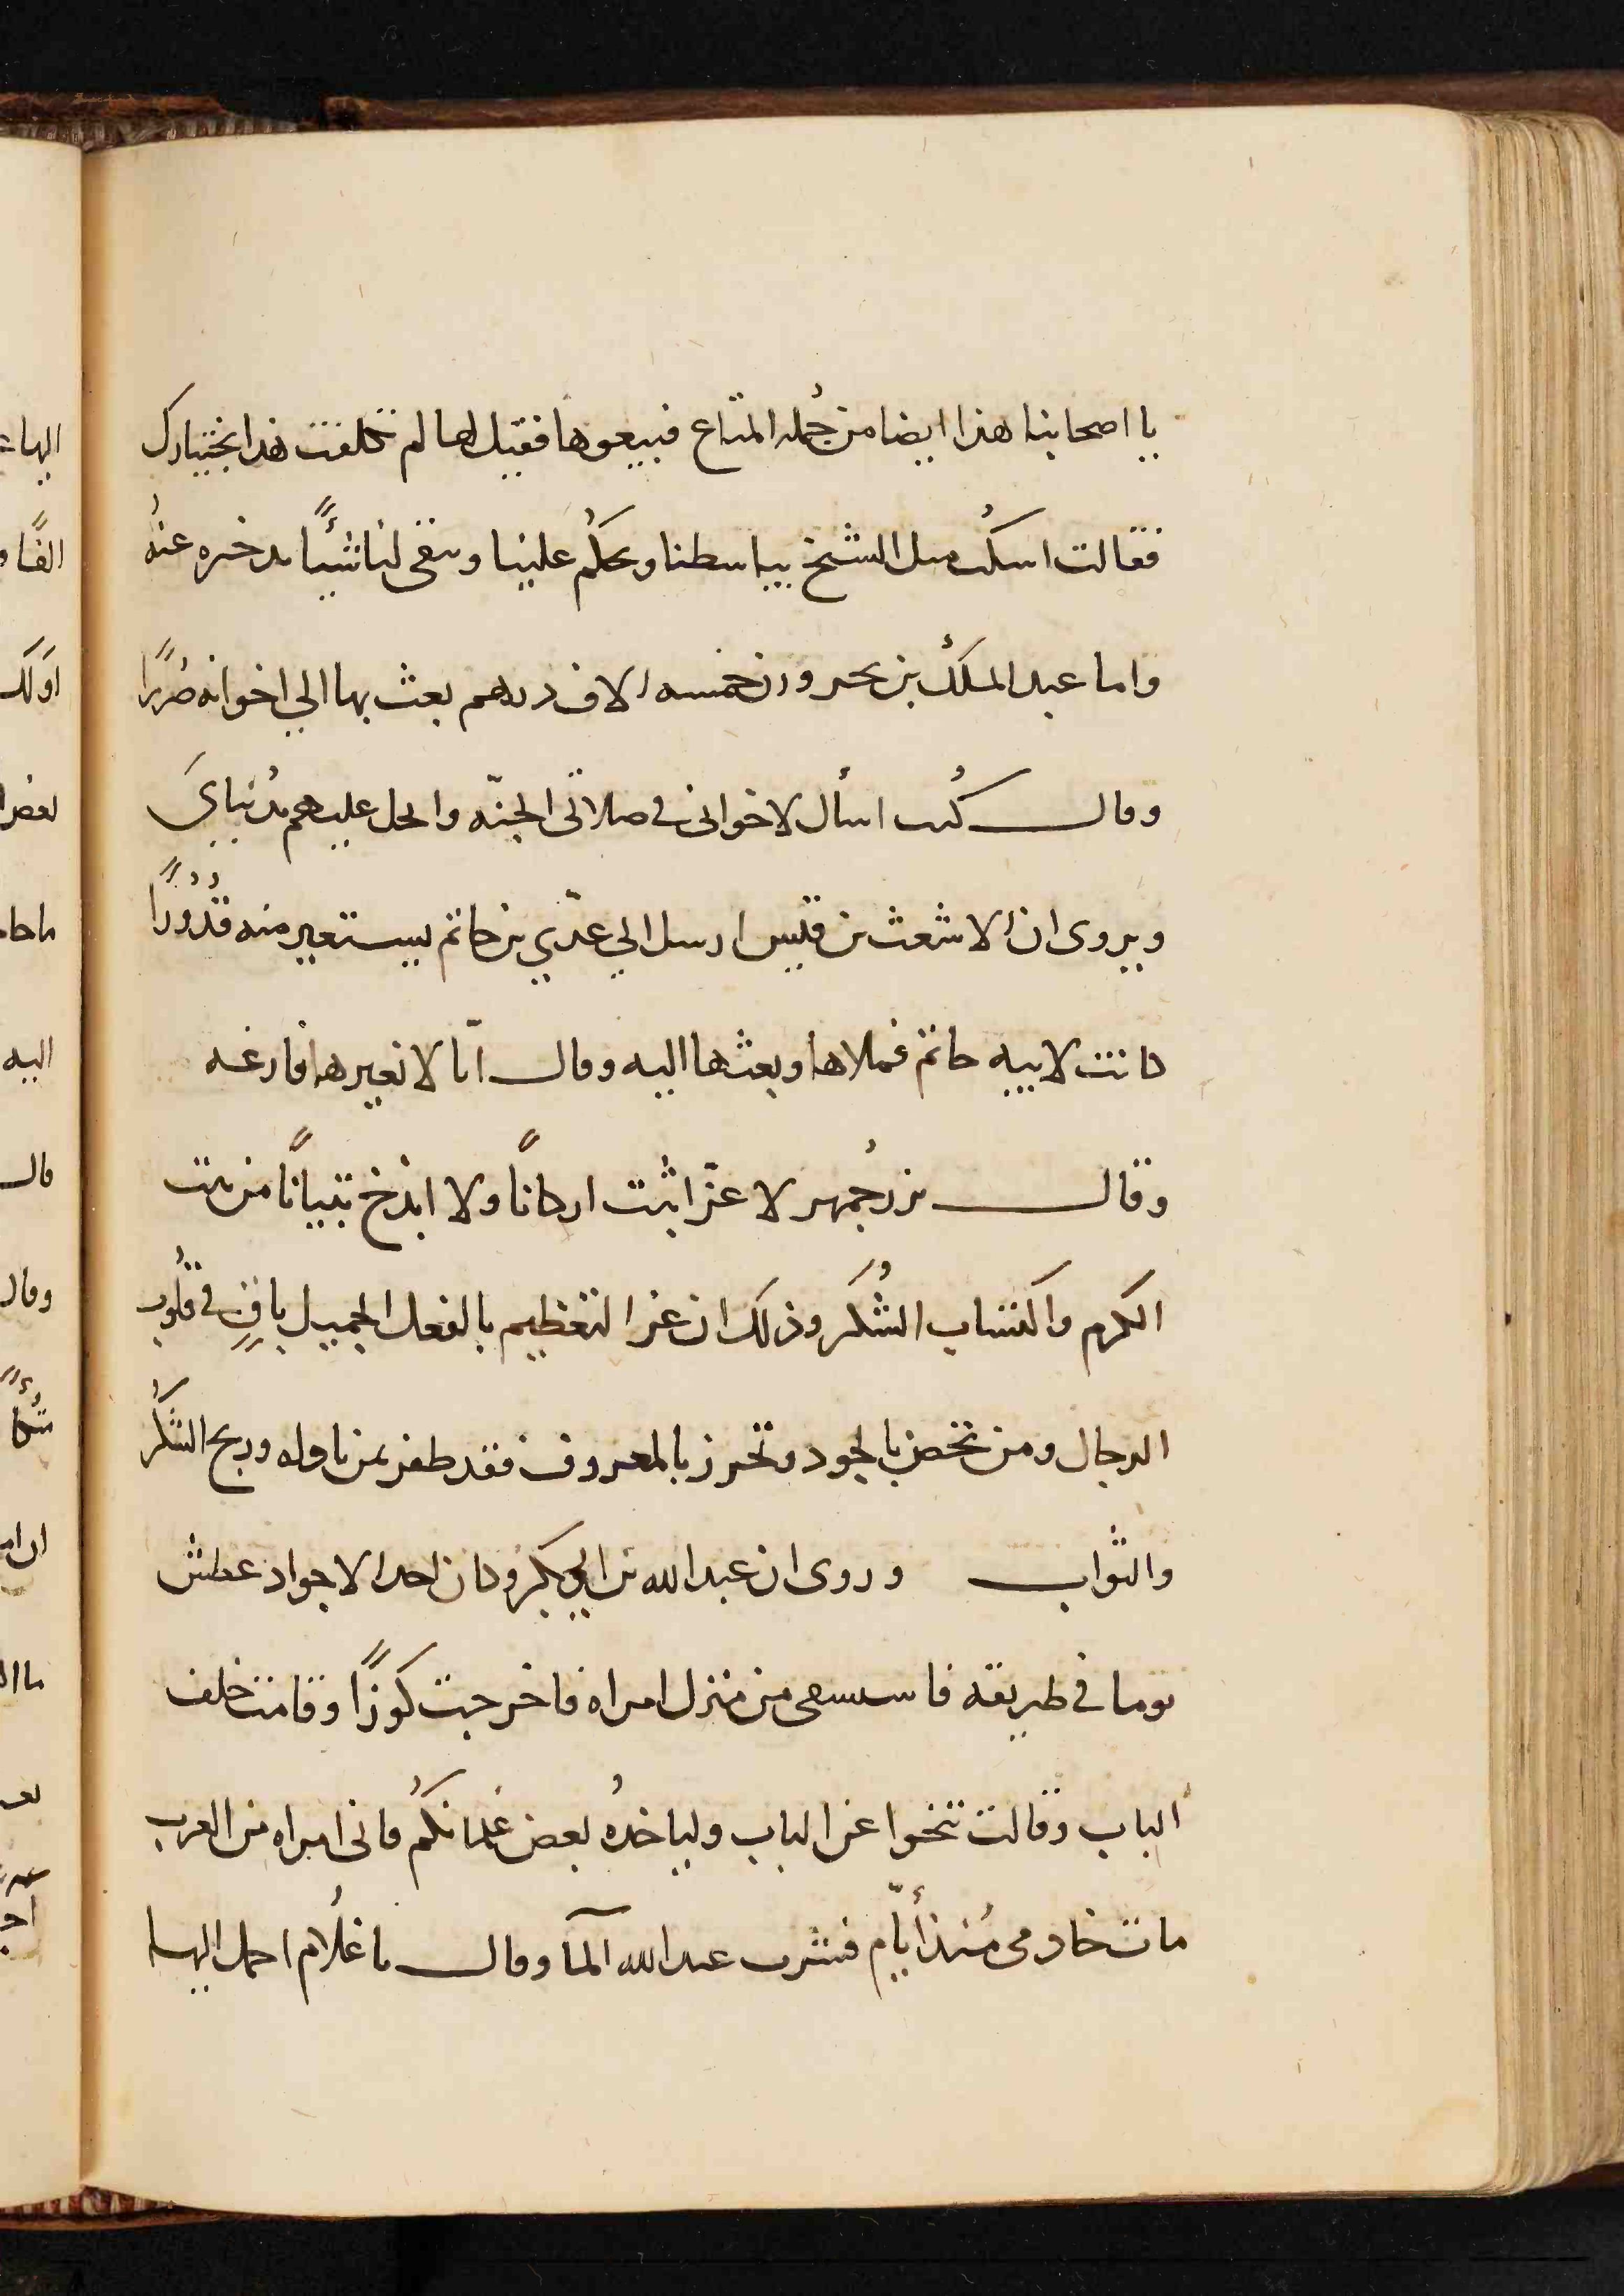 يا اصحابنا هذا ايضا من جُمله المتاع فبيعوها فقيل لها لم تكلفت هذا بختيارك
فقالت اسكُت مثل الشيخ يباسطنا ويحكُم علينا ونبقى لنا شيًّا ندخره عنهُ
واما عبد الملك بن بحر ورث خمسه الاف درهم بعث بها الي اخوانه صُررًا
وقال كُنت اسأل لاخواني في صلاتي الجنّه وابخل عليهم بدُنيايَ
ويروى ان الاشعث بن قيس ارسل الي عدّي بن حاتم يستعير منه قُدُورًا
كانت لابيه حاتم فملاها وبعثها اليه وقال انّا لا نعيرها فارغه
وقال بزرجُمهر لا عزّ اثبت اركانًا ولا ابذخ بنيانًا من بث
الكرم واكتساب الشُكر وذلك ان عز التعظيم بالفعل الجميل باقٍ في قلُوب
الرجال ومن تحصن بالجود وتحرز بالمعروف فقد ظفر بمن ناوله وربح الشُكر
والثواب وروى ان عبد الله بن ابي بكر وكان احد الاجواد عطش
يوما في طريقه فاستسقى من منزل امراه فاخرجت كوزًا وقامت خلف
الباب وقالت تنحوا عن الباب ولياخذهُ بعض غلمانكُم فاني امراه من العرب
مات خادمى مُنذ أيّام فشرب عبد الله المآ وقال يا غلُام احمل اليها